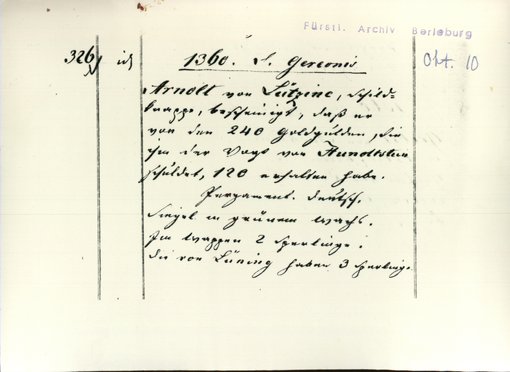 Fürstl. Archiv Berleburg
326
1360. S. Gereonis
Okt. 10
Arnolt von Lützine, Schild-
knappe, bescheinigt, daß er
von den 240 Goldgulden, die
ihm der Vogt von Hundtstein
schuldet, 120 erhalten habe.
Pergament. Deutsch.
Siegel in grünem Wachs.
Im Wappen 2 Sperlinge.
Die von Lüning haben 3 Sperlinge.